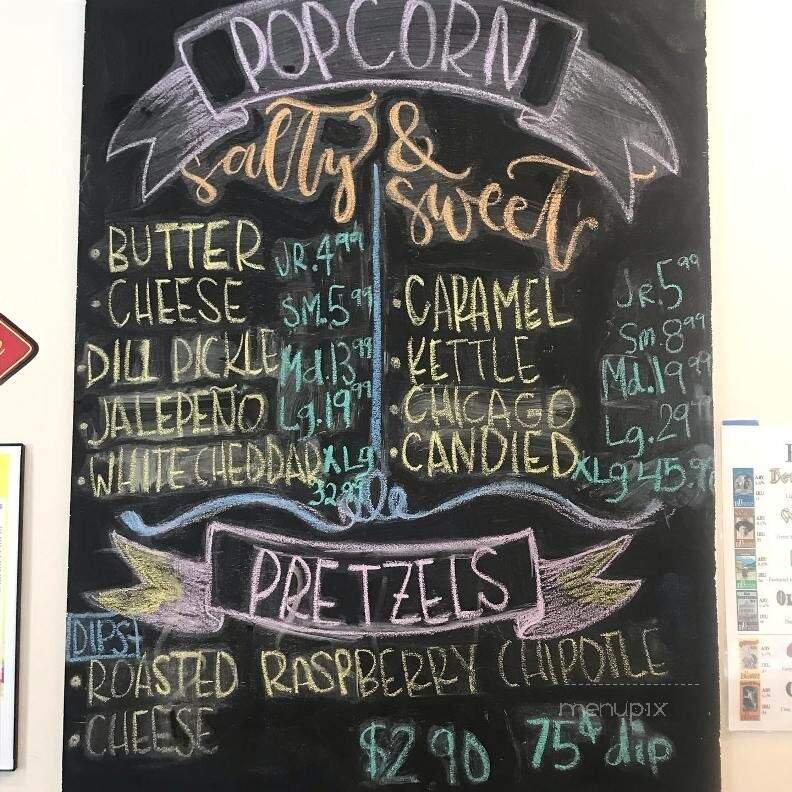 POPCORN
salty & sweet
• BUTTER JR. 4.99
• CHEESE SM. 5.99
• DILL PICKLE Md. 13.99
• JALEPEÑO Lg. 19.99
• WHITE CHEDDAR XLg 32.99
• CARAMEL Jr. 5.99
• KETTLE Sm. 8.99
• CHICAGO Md. 19.99
• CANDIED Lg. 29.99
XLg 45.9
PRETZELS
DIPS
• ROASTED RASPBERRY CHIPOTLE
• CHEESE
$2.90 75¢ dip
menupix